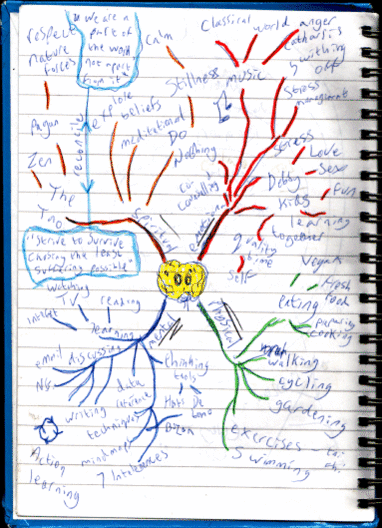 "We are a
part of
the world
not apart
from it"
respect
nature
forces
Calm
Classical
world
anger
Catharsis
Switching
off
music
Stillness
Stress
management
explore
beliefs
meditational
Do
Nothing
Pagan
Zen
The
Two
reconcile
spiritual
emotional
Stress
Love
Sex
Debby
Fun
Kids
learning
together
quality
time
Self
"strive to survive
causing the least
suffering possible"
watching
TV
reading
internet
learning
email
discussing
NG
mental
Physical
Vegan
Fresh
Food
eating
cooking
walking
cycling
gardening
exercises
tai
chi
Swimming
thinking
tools
data
writing
techniques
De
Bono
Buzan
mindmaps
7 Inteligences
Action
learning